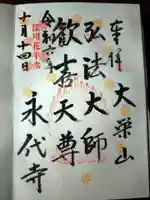 奉拝
大栄山
弘法大師
歓喜天尊
永代寺
令和六年
深川花手水
十月十四日